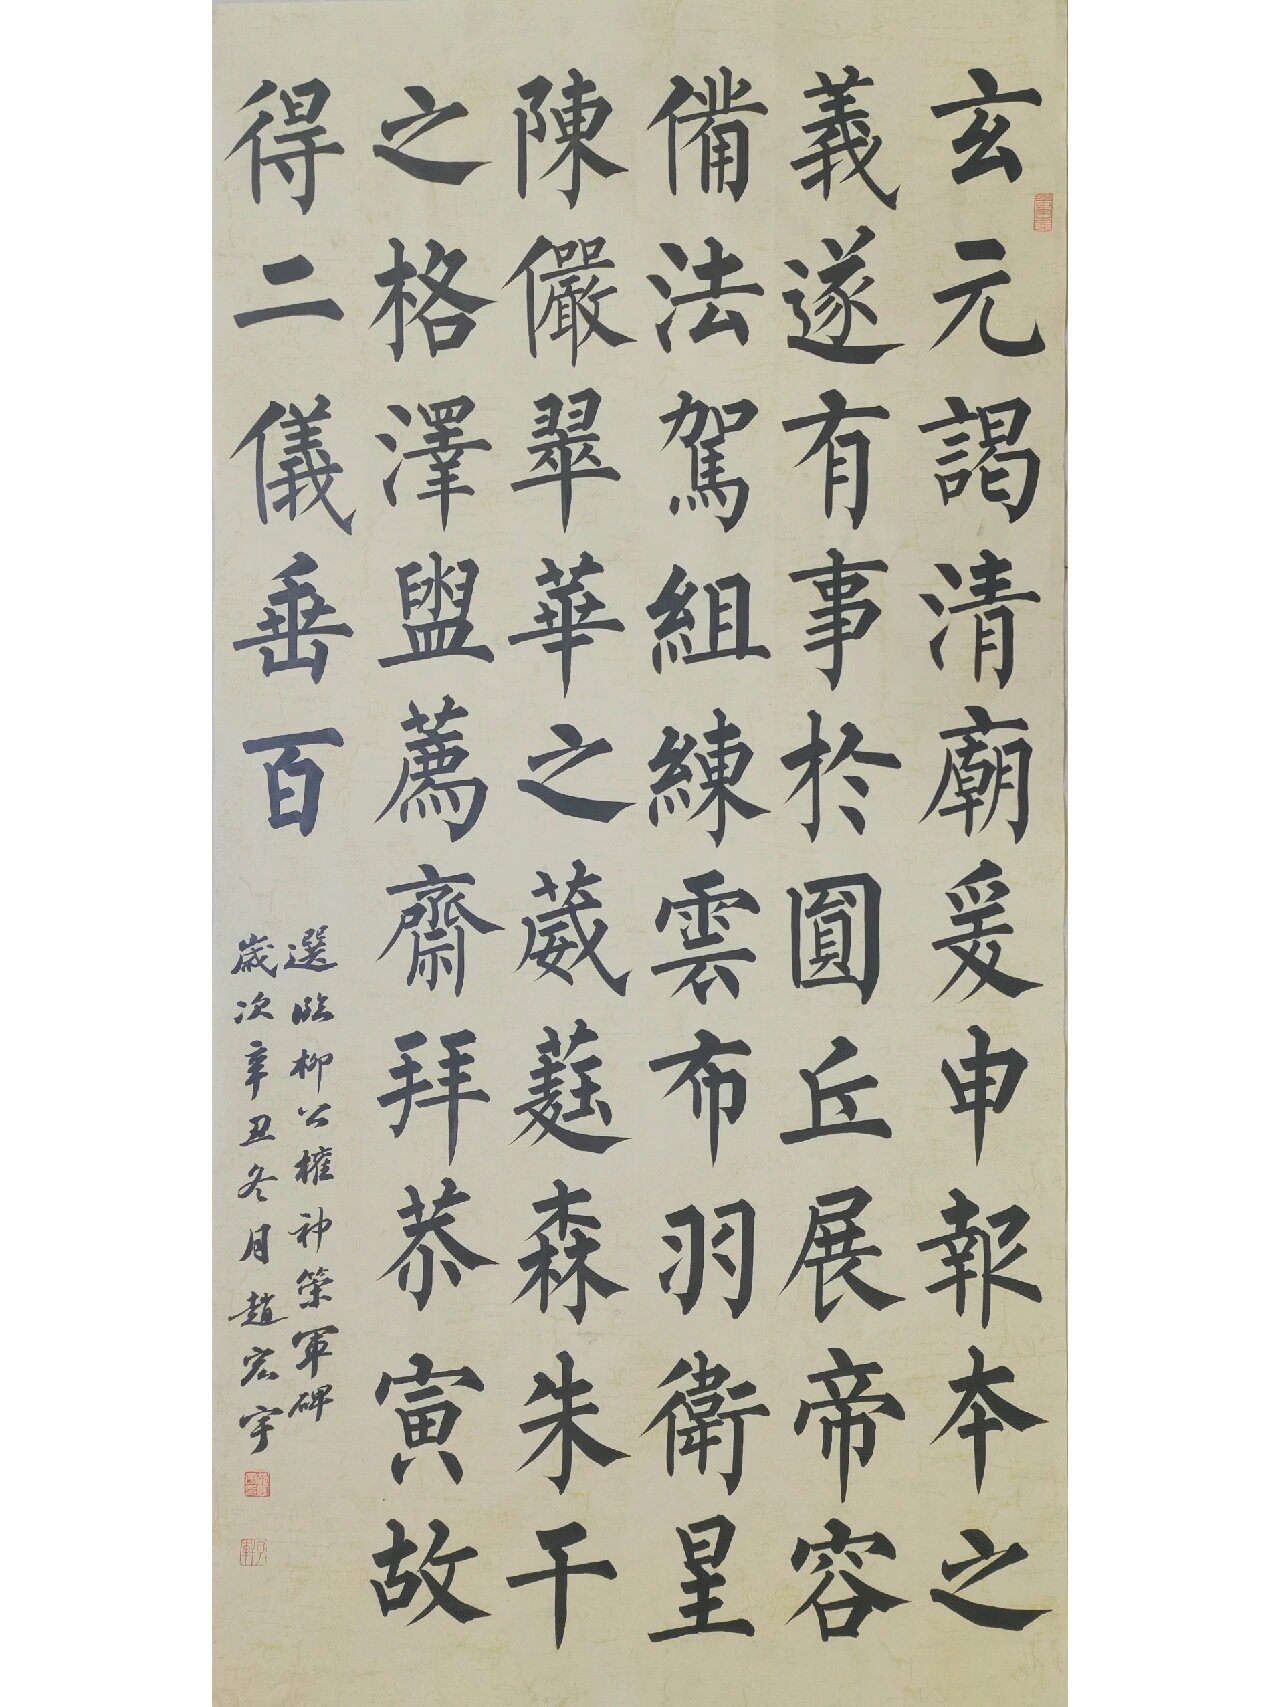 玄元謁清廟爰申報本之
義遂有事於圓丘展帝容
備法駕組練雲布羽衛星
陳儼翠華之葳蕤森朱干
之格澤盥薦齋拜恭寅故
得二儀垂百
選臨柳公權神策軍碑
歲次辛丑冬月趙宏宇